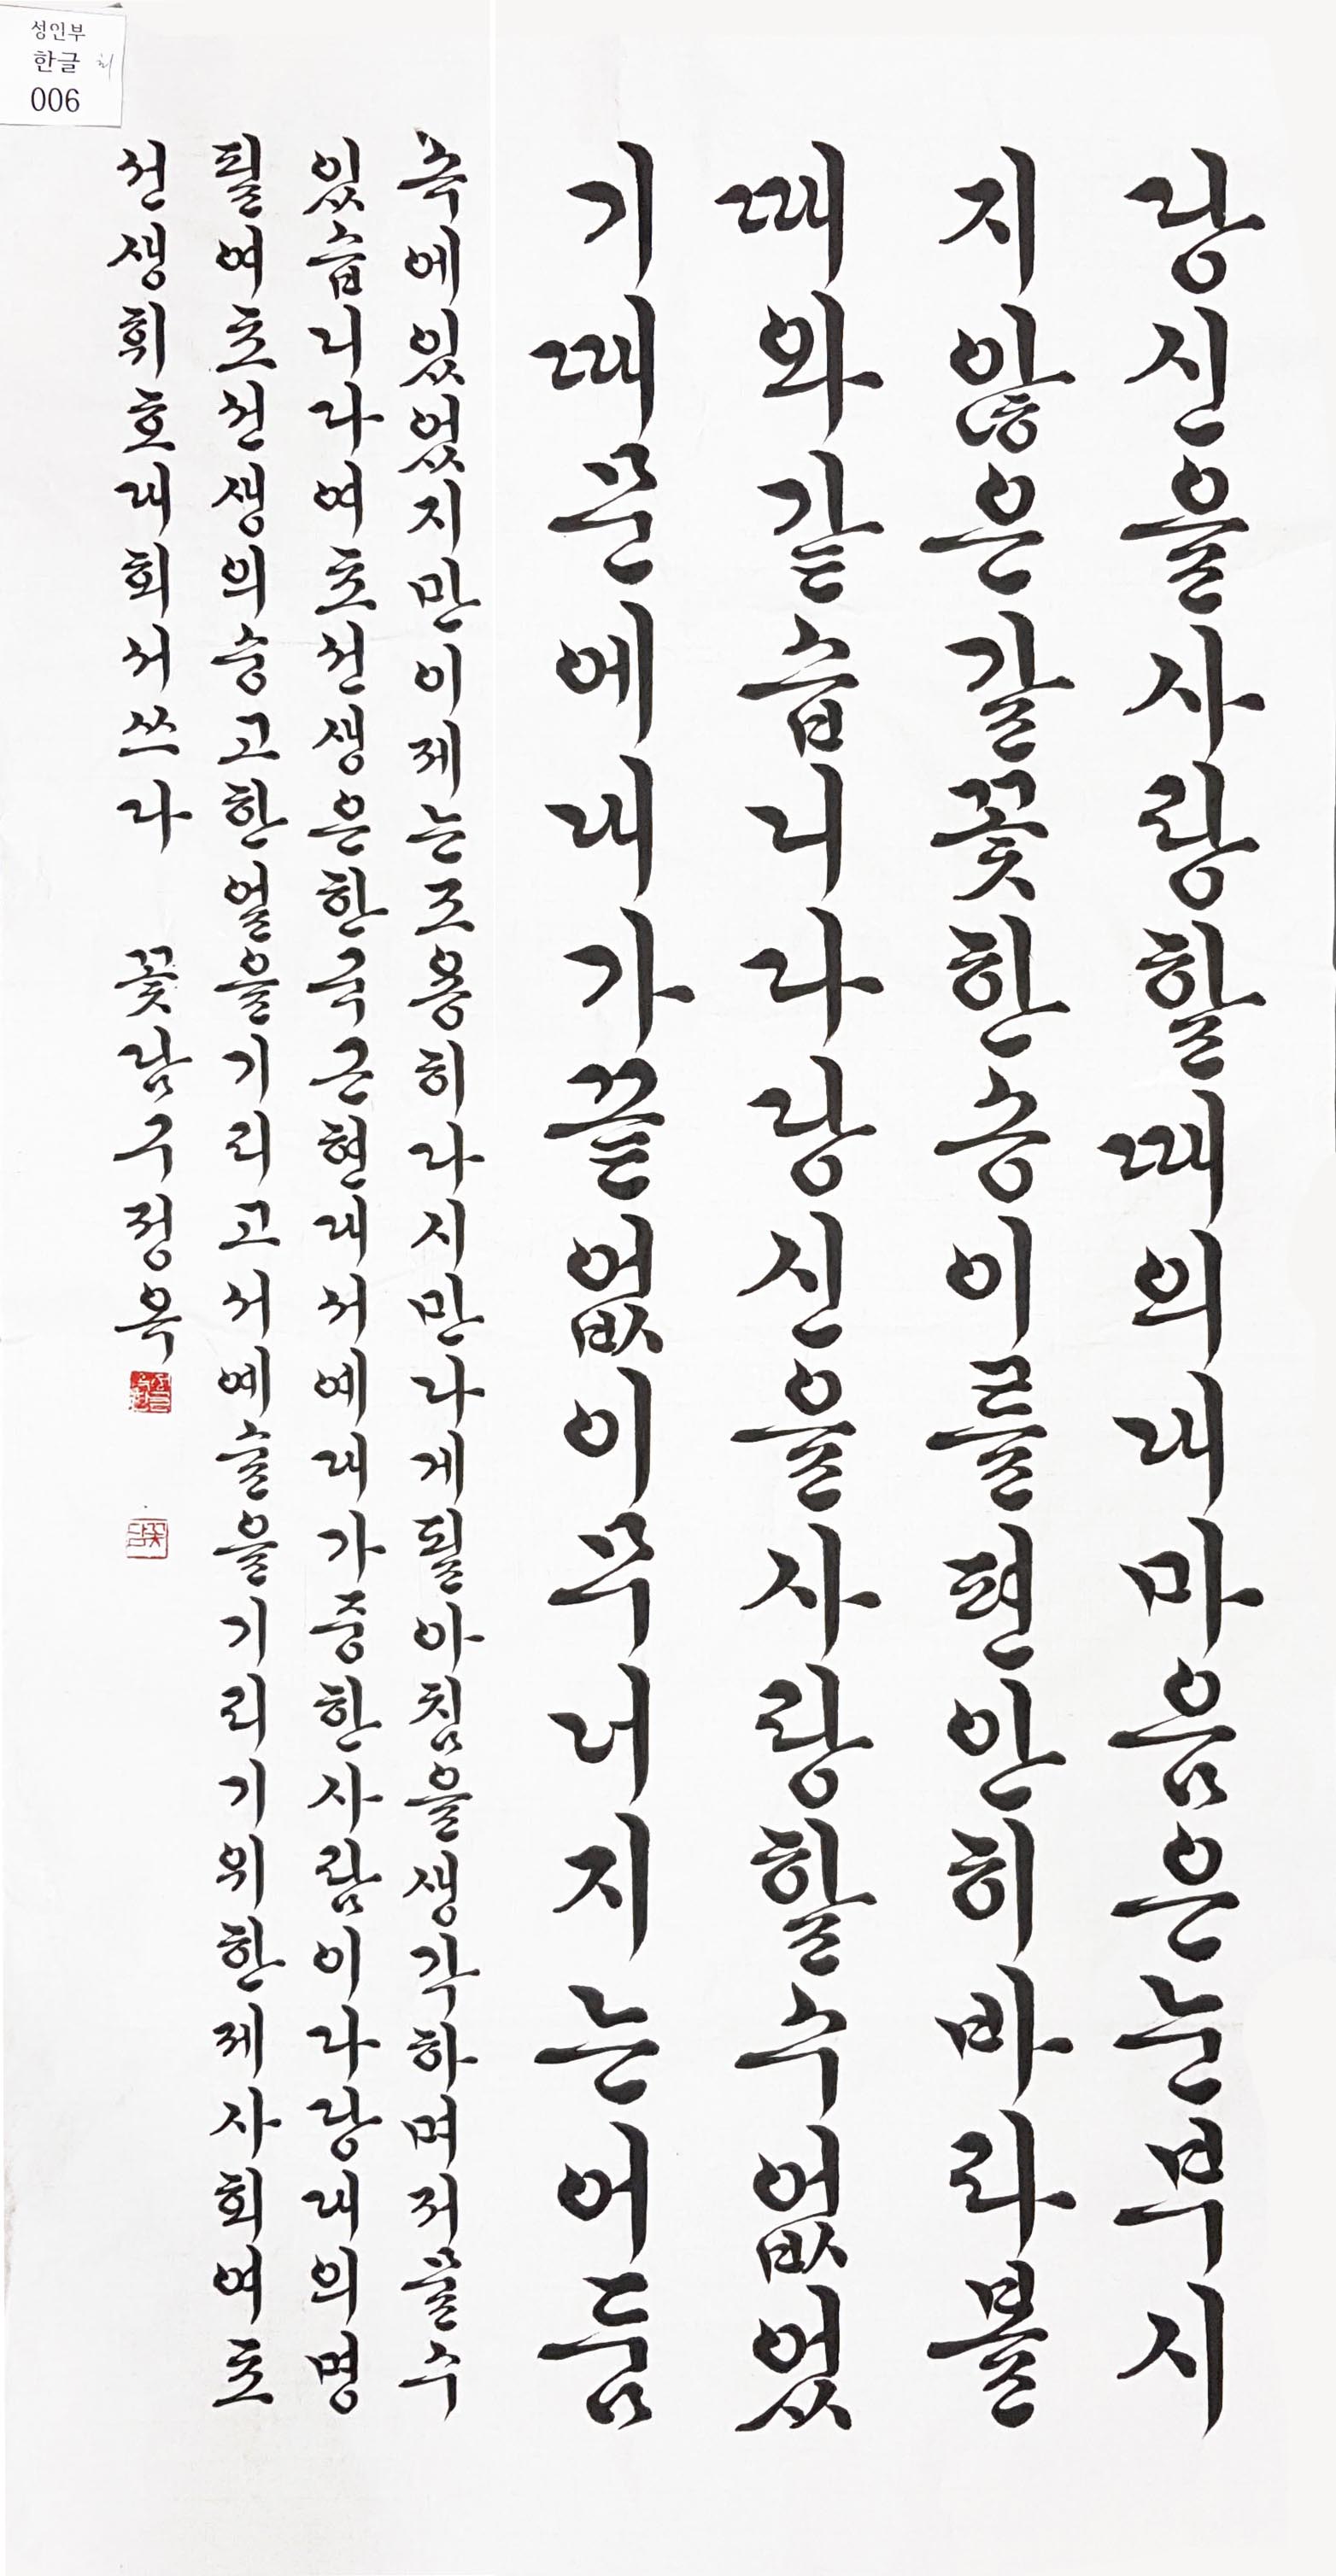 성인부
한글
006
당신을사랑할때의내마음은눈부시
지않은갈꽃한송이를편안히바라볼
때와같습니다당신을사랑할수없었
기때문에내가끝없이무너지는어둠
속에있었지만이제는조용히다시만나게될아침을생각하며저물수
있습니다여초선생은한국근현대서예대가중한사람이다당대의명
필여초선생의숭고한얼을기리고서예술을기리기위한제사회여초
선생휘호대회서쓰다 꽃담구정옥
꽃담